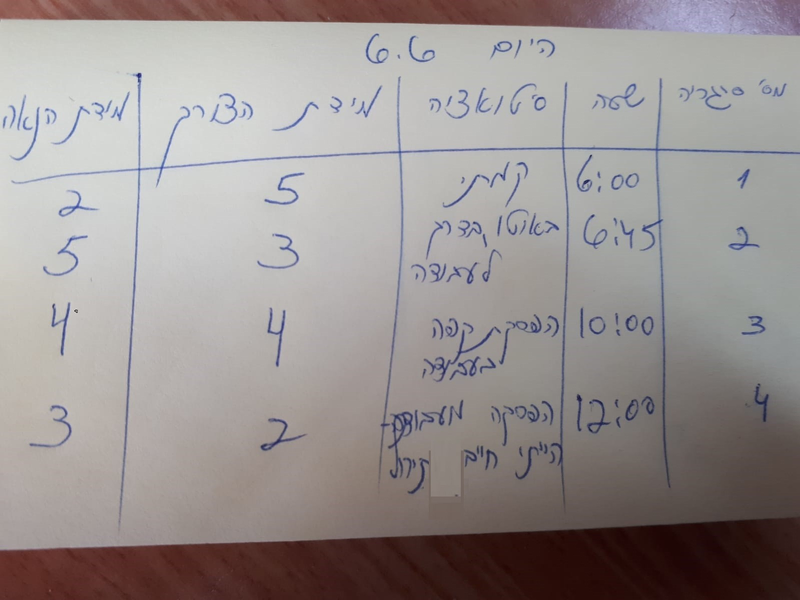 היום 6.6
מס' סיגריה שעה סיטואציה מידת הצורך מידת הנאה
1 6:00 קמתי 5 2
2 6:45 באוטו בדרך 3 5
לעבודה
3 10:00 הפסקת קפה 4 4
בעבודה
4 12:00 הפסקה מעבודה 2 3
הייתי חייב